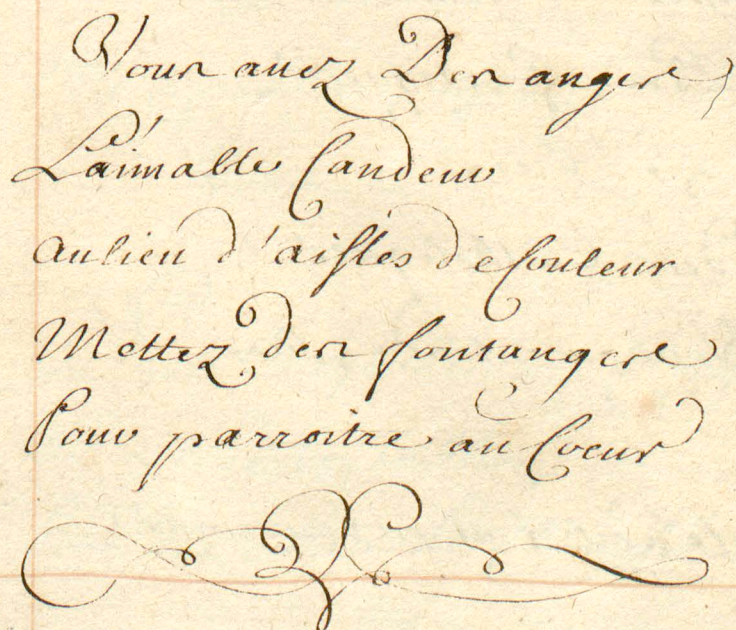 Vous auez Des anges
L'aimable Candeur
aulieu d'aisles de Couleur
Mettez des fontanges
Pour parroitre au Coeur